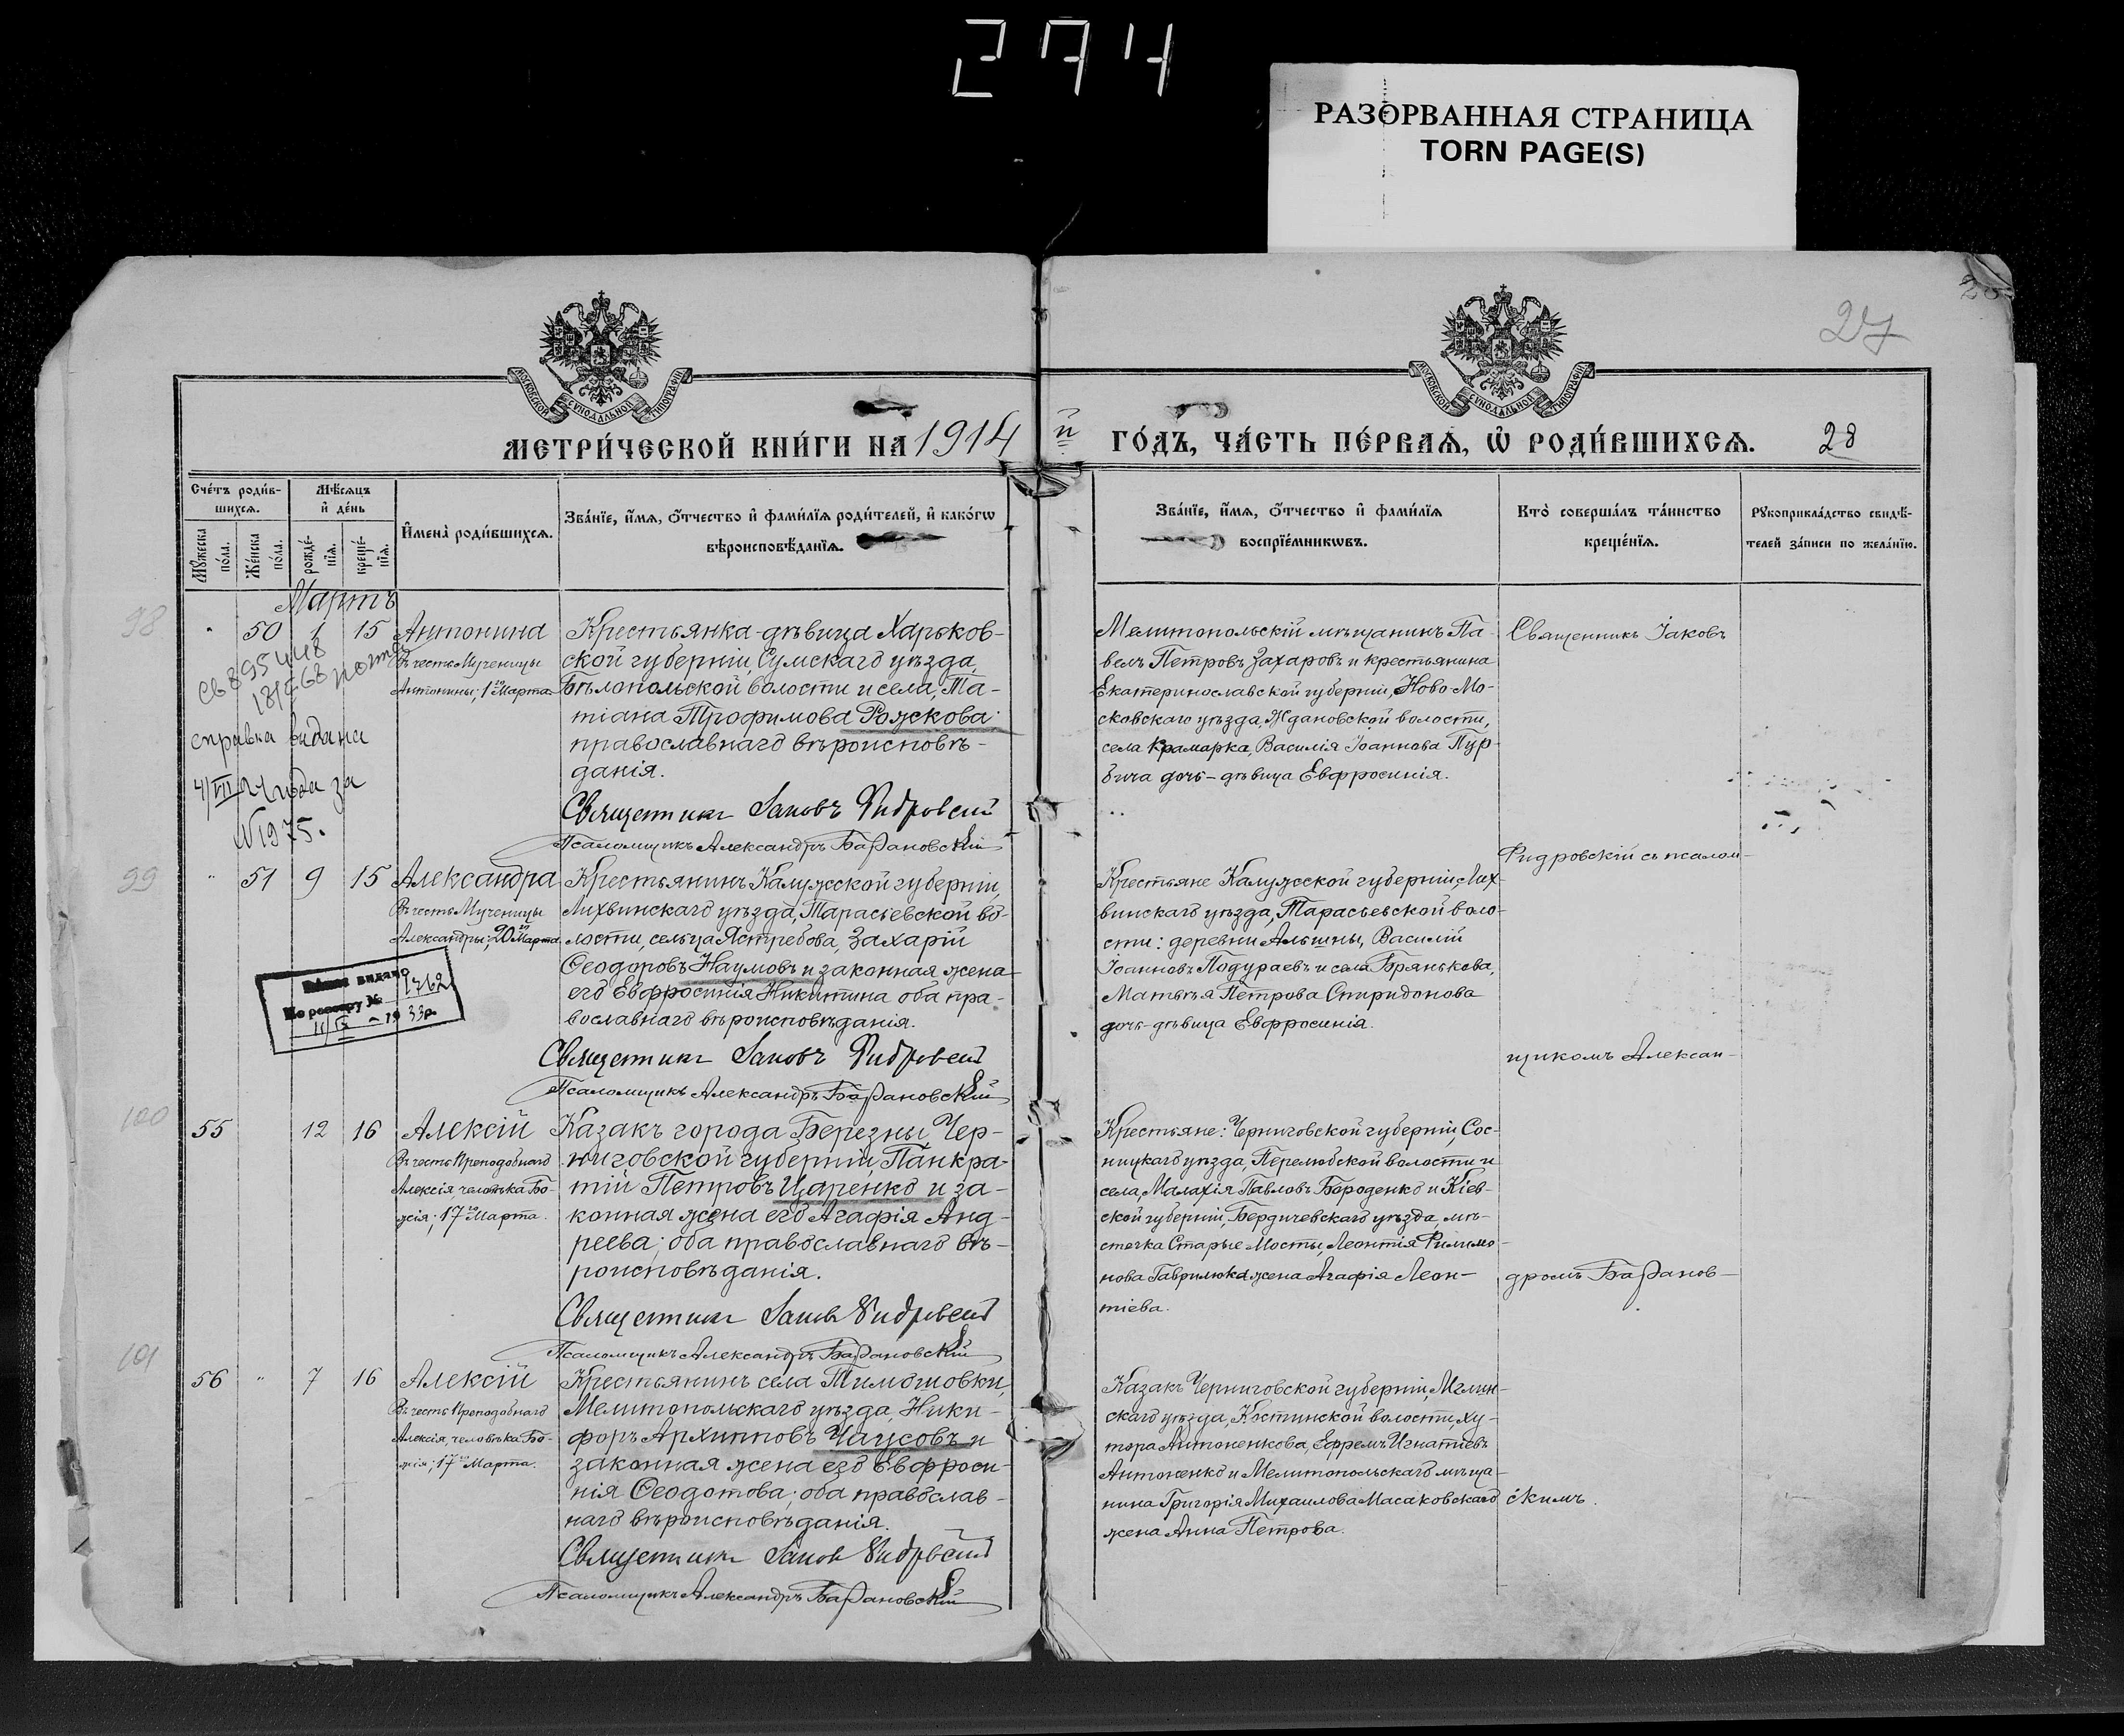 274
РАЗОРВАННАЯ СТРАНИЦА
TORN PAGE(S)
27
28
МОСКОВСКОЙ СУНОДАЛЬНОЙ ТИПОГРАФІИ
МОСКОВСКОЙ СУНОДАЛЬНОЙ ТИПОГРАФІИ
МЕТРИ́ЧЕСКОЙ КНИ́ГИ НА 1914 й ГО́ДЪ, ЧА́СТЬ ПЕ́РВАѦ, Ѡ҆ РОДИ́ВШИХСѦ.
Сче́тъ роди́в-
шихсѧ.
Мѣ́сѧцъ
и҆ де́нь
Мꙋ́жеска
по́ла.
Же́нска
по́ла.
рожде́-
нїѧ.
креще́-
нїѧ.
И҆мена̀ роди́вшихсѧ.
Зва́нїе, и҆́мѧ, ѻ҆́тчество и҆ фами́лїѧ роди́телей, и҆ како́гѡ
вѣроисповѣ́данїѧ.
Зва́нїе, и҆́мѧ, ѻ҆́тчество и҆ фами́лїѧ
воспрїе́мникѡвъ.
Кто̀ соверша́лъ та́инство
креще́нїѧ.
Рꙋкоприкла́дство свидѣ́-
телей за́писи по жела́нїю.
Мартъ
98
50 1 15 Антонина
Въ честь Мученицы
Антонины; 1го Марта
справка видана
4/VII 24 года за
№ 1975.
Крестьянка-дѣвица Харьков-
ской губерніи, Сумскаго уѣзда,
Бѣлопольской волости и села, Та-
тіана Трофимова Рожкова;
православнаго вѣроисповѣ-
данія.
Священникъ Іаковъ Фидровскій
Псаломщикъ Александръ Барановскій
Мелитопольскій мѣщанинъ Па-
велъ Петровъ Захаровъ и крестьянина
Екатеринославской губерніи, Ново-Мо-
сковскаго уѣзда, Ждановской волости,
села Крамарка, Василія Іоаннова Пур-
бича дочь-дѣвица Евфросинія.
Священникъ Іаковъ
Фидровскій съ псалом-
99
51 9 15 Александра
Въ честь Мученицы
Александры; 20го Марта.
По реестру № 1762
11/IX - 1933р.
Крестьянинъ Калужской губерніи,
Лихвинскаго уѣзда, Тарасьевской во-
лости, сельца Ястребова, Захарій
Ѳеодоровъ Наумовъ и законная жена
его Евфросинія Никитина оба пра-
вославнаго вѣроисповѣданія.
Священникъ Іаковъ Фидровскій
Псаломщикъ Александръ Барановскій
Крестьяне Калужской губерніи, Лих-
винскаго уѣзда, Тарасьевской воло-
сти: деревни Альшны, Василій
Іоанновъ Подураевъ и села Брянькова,
Матѳея Петрова Спиридонова
дочь-дѣвица Евфросинія.
щикомъ Алексан-
100
55 12 16 Алексій
Въ честь Преподобнаго
Алексія, человѣка Бо-
жія; 17го Марта.
Казакъ города Березны, Чер-
ниговской губерніи, Панкра-
тій Петровъ Царенко и за-
конная жена его Агафія Анд-
реева; оба православнаго вѣ-
роисповѣданія.
Священникъ Іаковъ Фидровскій
Псаломщикъ Александръ Барановскій
Крестьяне: Черниговской губерніи, Сос-
ницкаго уѣзда, Перелюбской волости и
села, Малахія Павловъ Бороденко и Кіев-
ской губерніи, Бердичевскаго уѣзда, мѣ-
стечка Старые-Мосты, Леонтія Филимо-
нова Гаврилюка жена Агафія Леон-
тіева.
дромъ Баранов-
101
56 " 7 16 Алексій
Въ честь Преподобнаго
Алексія, человѣка Бо-
жія; 17го Марта.
Крестьянинъ села Тимошовки,
Мелитопольскаго уѣзда, Ники-
форъ Архипповъ Чаусовъ и
законная жена его Евфроси-
нія Ѳеодотова; оба православ-
наго вѣроисповѣданія.
Священникъ Іаковъ Фидровскій
Псаломщикъ Александръ Барановскій
Казакъ Черниговской губерніи, Мглин-
скаго уѣзда, Костинской волости, ху-
тора Антоненкова, Ефремъ Игнатіевъ
Антоненко и Мелитопольскаго мѣща-
нина Григорія Михаилова Масаковскаго
жена Анна Петрова.
скимъ.